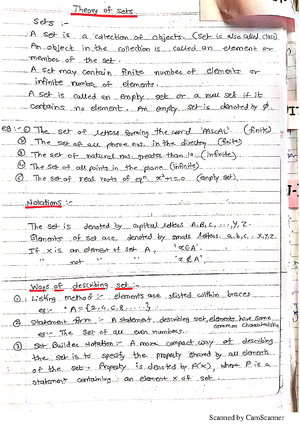 Theory of Sets
Sets :-
A set is a collection of objects. (Set is also called class)
An object in the collection is called an element or
member of the set.
A set may contain finite number of elements or
infinite number of elements.
A set is called an empty set or a null set if it
contains no element. An empty set is denoted by ∅.
eg :- ① The set of letters forming the word (finite)
The set of all phone nos. in the directory (finite)
The set of natural nos. greater than 10. (infinite)
The set of all points in the plane (infinite)
The set of real roots of eqⁿ x²+1=0. (empty set)
Notations :-
The set is denoted by capital letters A, B, C, ..., Y, Z.
Elements of set are denoted by small letters a, b, c, .. x, y, z.
If x is an element of set A, 'x∈A'
not 'x∉A'
Ways of describing set :-
① Listing method :- elements are listed within braces
eg :- A = {2, 4, 6, 8, ....}
② Statement form :- A statement describing set, elements have same
common characteristics
eg :- The set of all even numbers.
③ Set Builder Notation :- A more compact way of describing
the set is to specify the property shared by all elements
of the set. Property is denoted by P(x), where P is a
statement containing an element x of set.
Scanned by CamScanner